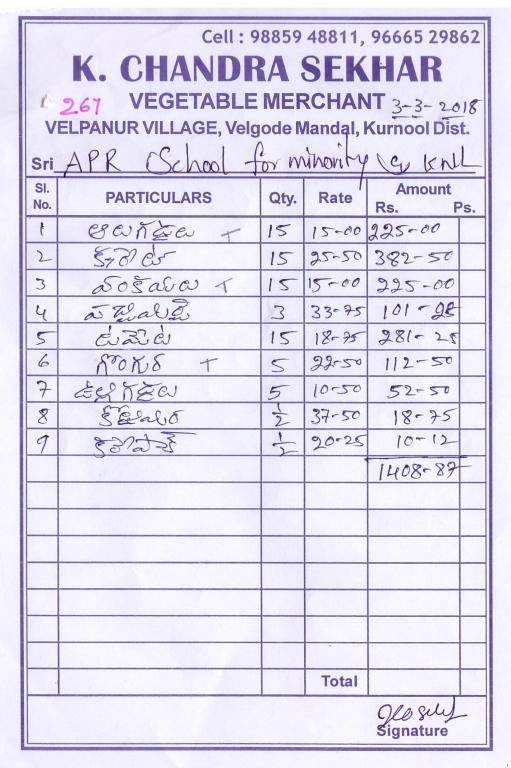 Cell : 98859 48811, 96665 29862
K. CHANDRA SEKHAR
267 VEGETABLE MERCHANT 3-3-2018
VELPANUR VILLAGE, Velgode Mandal, Kurnool Dist.
Sri APR School for minority KNL
Sl. No. PARTICULARS Qty. Rate Amount Rs. Ps.
1 ఆలుగడ్డలు + 15 15-00 225-00
2 క్యారెట్ 15 25-50 382-50
3 వంకాయలు + 15 15-00 225-00
4 పచ్చిమిర్చి 3 33-75 101-25
5 టమోట 15 18-75 281-25
6 గోంగూర + 5 22-50 112-50
7 ఉల్లిగడ్డలు 5 10-50 52-50
8 1/2 37-50 18-75
9 1/2 20-25 10-12
1408-87
Total
Signature